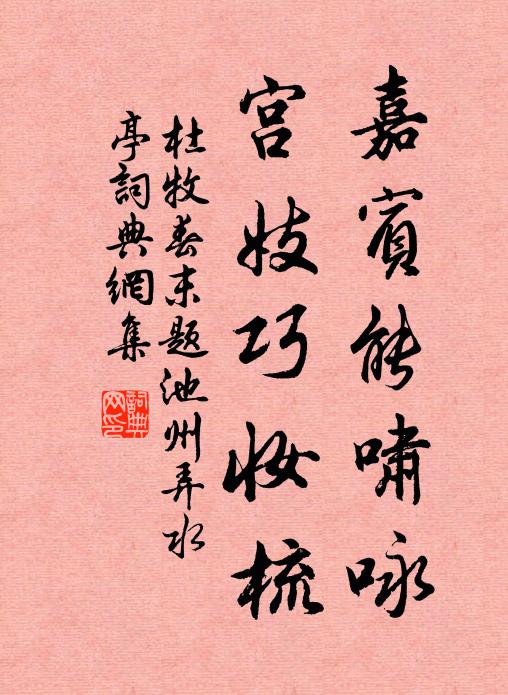 嘉賓能嘯咏
宮妓巧妝梳
杜牧春末題池州弄水
亭詞典網集
詞典
网印